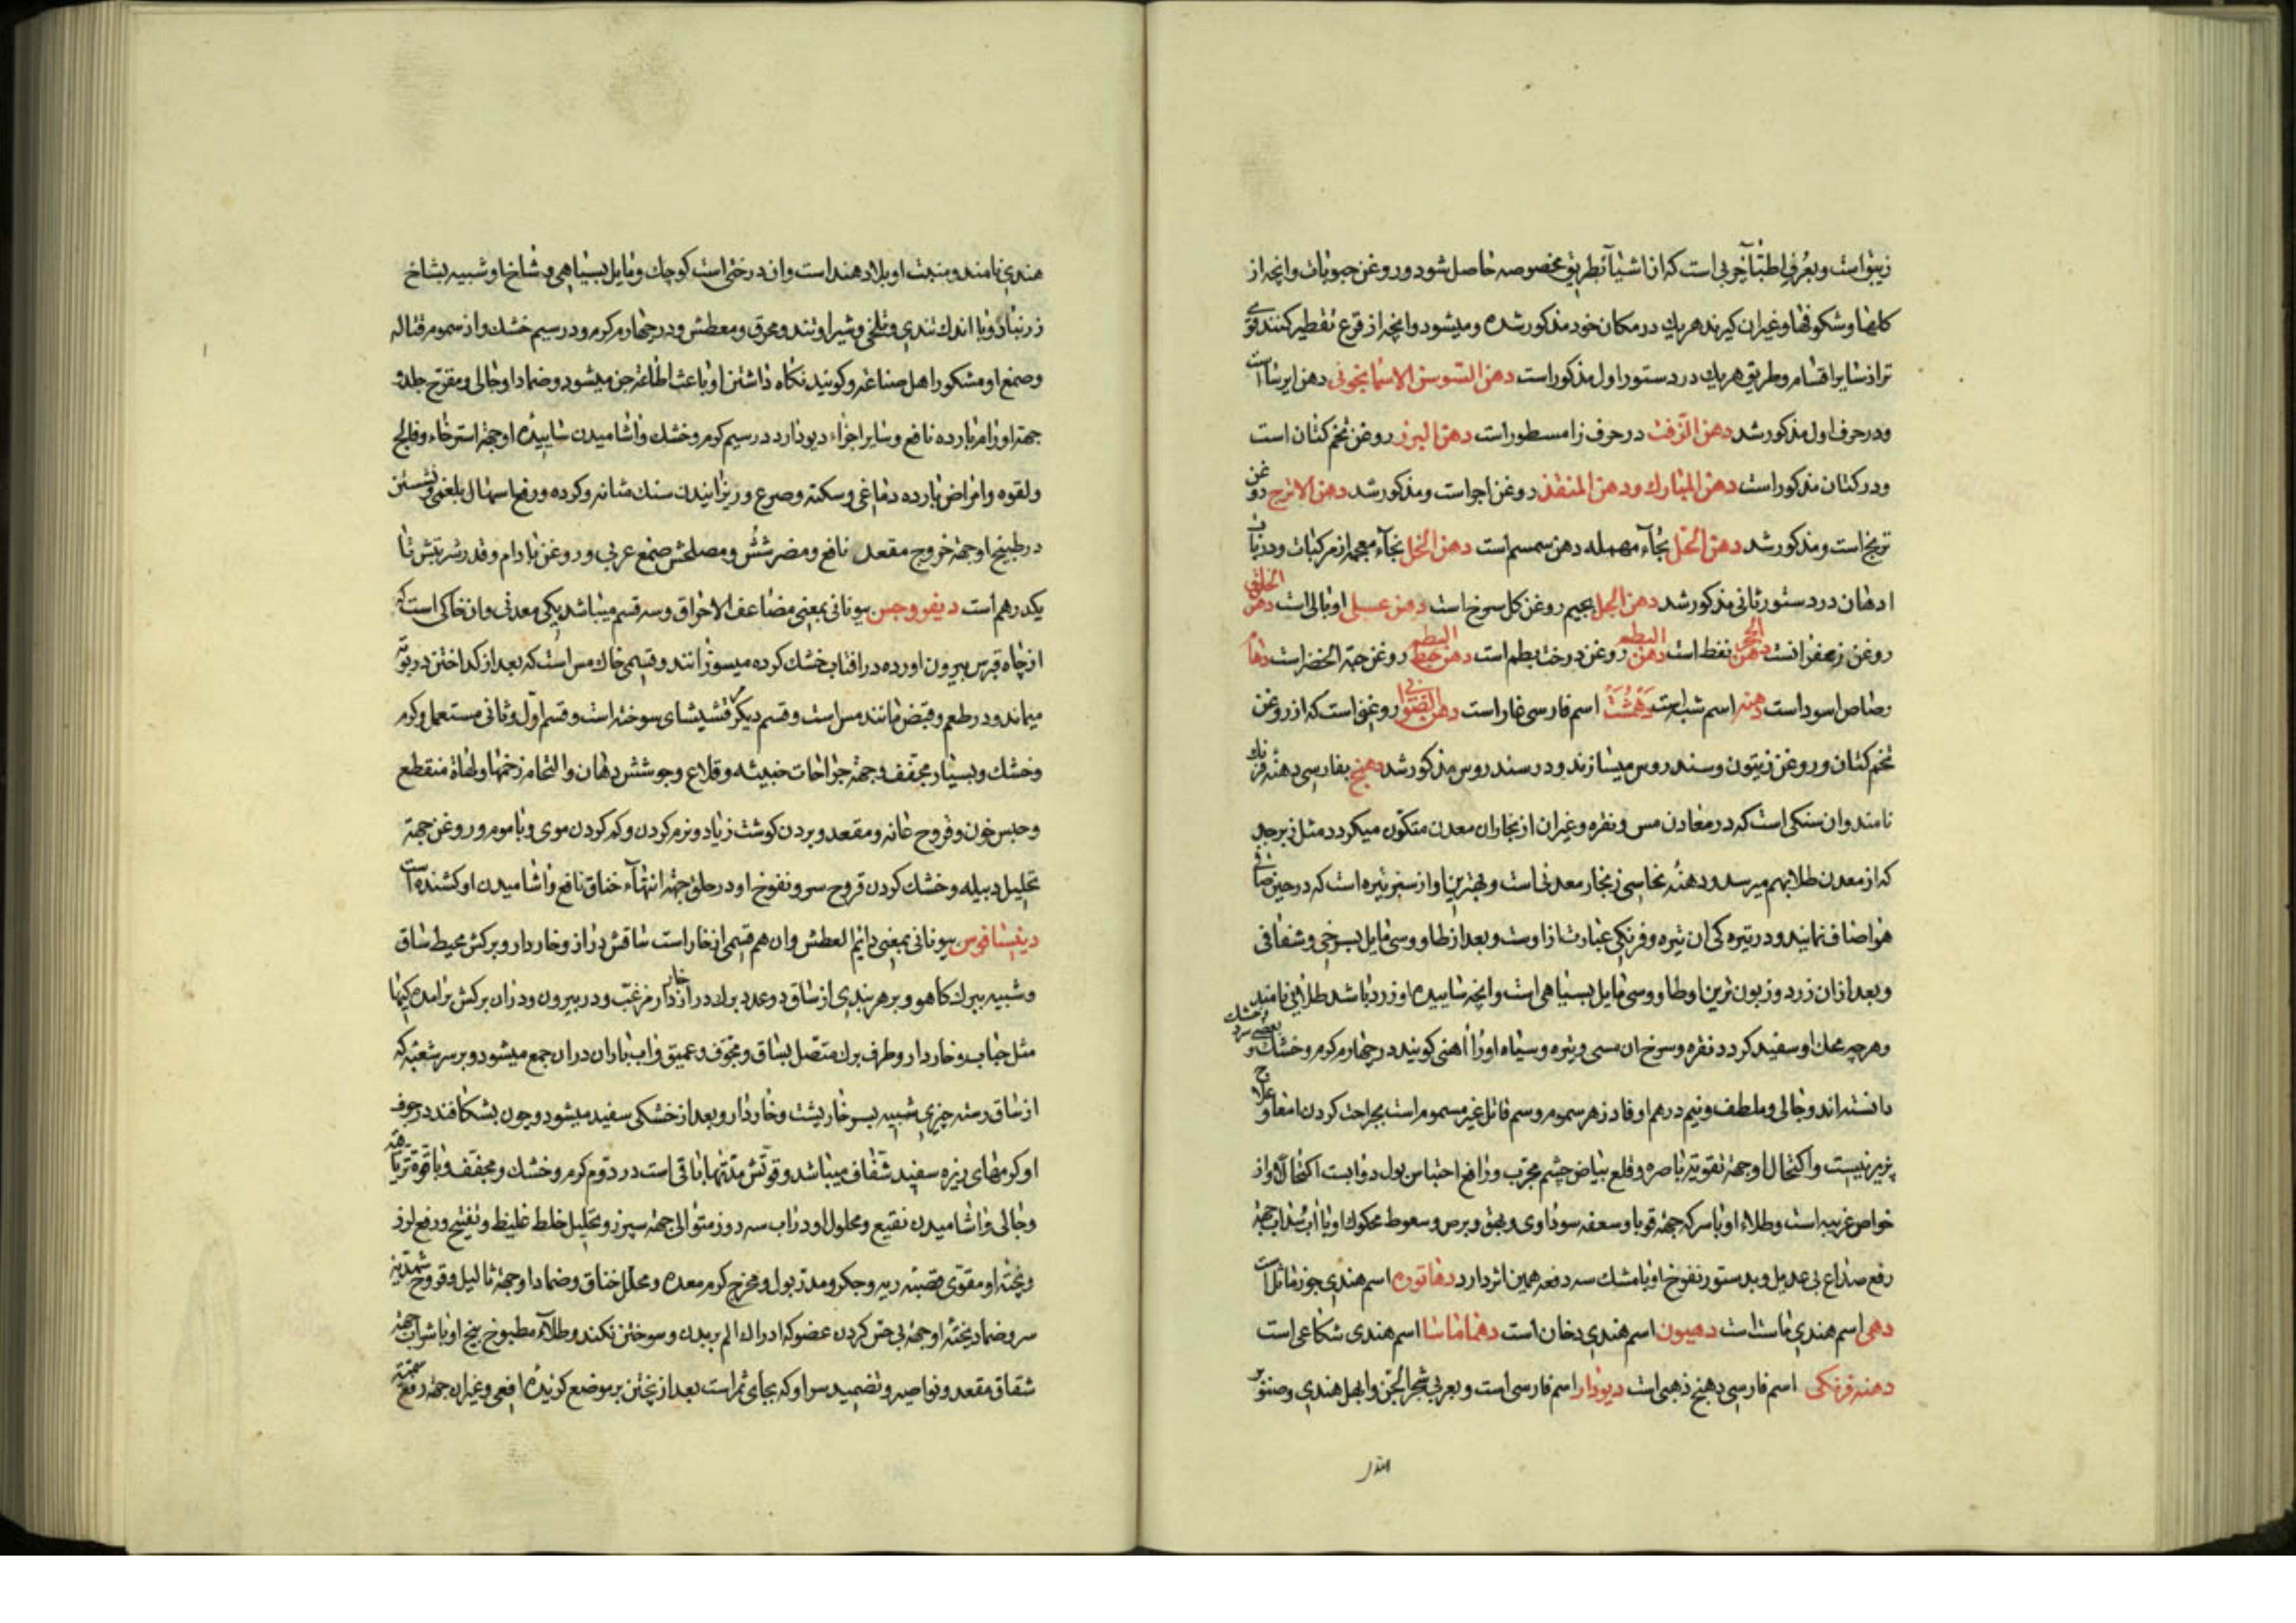 زیتون است و بعرف اطبا چربی است که از اشیا بطریق مخصوصه حاصل شود و روغن حبوبات و انچه از
کلها و شکوفها و غیر ان کیرند هر یك در مکان خود مذکور شده و میشود و انچه از قرع تقطیر کنند قوی
تر از سایر اقسام و طریق هر یك در دستور اول مذکور است دهن السوسن الاسمانجونی دهن ایرسا است
و در حرف اول مذکور شد دهن الزفت در حرف زا مسطور است دهن البزر روغن تخم کتان است
و در کتان مذکور است دهن المبارك و دهن المنقذ روغن اجر است و مذکور شد دهن الاترج روغن
ترنج است و مذکور شد دهن الحل بحاء مهمله دهن سمسم است دهن الخل بخاء معجمه از مرکبات و در باب
ادهان در دستور ثانی مذکور شد دهن الجل بجیم روغن کل سرخ است دهن عسلی اومالی است دهن الخلوق
روغن زعفرانست دهن الحجر نفط است دهن البطم روغن درخت بطم است دهن حب البطم روغن حبة الخضرا است دهام
رصاص اسود است دهنه اسم شب است دهمشت اسم فارسی غار است دهن الصوابی روغنی است که از روغن
تخم کتان و روغن زیتون و سندروس میسازند و در سندروس مذکور شد دهنج بفارسی دهنه فرنك
نامند و ان سنکی است که در معادن مس و نقره و غیر ان از بخار ان معدن متکون میکردد مثل زبرجد
که از معدن طلا بهم میرسد و دهنه نحاسی زنجار معدنی است و بهترین او از سبز تیره است که در حین صافی
هوا صاف نماید و در تیره کی ان تیره و فرنکی عبارت از اوست و بعد از ان طاووسی مایل بسرخی و شفافی
و بعد از ان زرد و زبون ترین او طاووسی مایل بسیاهی است و انچه ساییده او زرد باشد طلایی نامند
و هر چه محك او سفید کردد نقره و سرخ ان مسی و تیره و سیاه او را اهنی کویند در چهارم کرم و خشك و بعضی سرد و خشك
دانسته اند و جالی و ملطف و نیم درهم او فادزهر سموم و سم قاتل غیر مسموم است بجراحت کردن امعا و علاج
پزیر نیست و اکتحال او جهة تقویة باصره و قلع بیاض چشم مجرب و رافع احتباس بول دوابست اکتحالا و از
خواص غریبه است و طلاء او با سرکه جهة قوبا و سعفه سوداوی و بهق و برص و سعوط محکوك او با اب سداب جهة
رفع صداع بی عدیل و بدستور نفوخ او با مشك سه دفعه همین اثر دارد دهاتوره اسم هندی جوز ماثل است
دهی اسم هندی ماست است دهیون اسم هندی دخان است دهماماسا اسم هندی شکاعی است
دهنه فرنکی اسم فارسی دهنج ذهبی است دیودار اسم فارسی است و بعربی شجر الجن و ابهل هندی و صنوبر
هندی نامند و منبت او بلاد هند است و ان درختی است کوچك و مایل بسیاهی و شاخ او شبیه بشاخ
زرنباد و با اندك تندی و تلخی و شیر او تند و محرق و معطش و در چهارم کرم و در سیم خشك و از سموم قتاله
و صمغ او مشکور اهل صناعه و کویند نکاه داشتن او باعث اطاعة جن میشود و ضماد او جالی و مقرح جلد
جهة اورام بارده نافع و سایر اجزاء دیودار در سیم کرم و خشك و اشامیدن ساییده او جهة استرخاء و فالج
و لقوه و امراض بارده دماغی و سکته و صرع و ریزانیدن سنك مثانه و کرده و رفع اسهال بلغمی و نشستن
در طبیخ او جهة خروج مقعد نافع و مضر شش و مصلحش صمغ عربی و روغن بادام و قدر شربتش تا
یکدرهم است دیفروجس بیونانی بمعنی مضاعف الاحراق و سه قسم میباشد یکی معدنی و ان خاکی است که
از چاه قبرس بیرون اورده در افتاب خشك کرده میسوزانند و قسمی خاك مس است که بعد از کداختن در بوته
میماند و در طعم و قبض مانند مس است و قسم دیکر مرقشیشای سوخته است و قسم اول و ثانی مستعمل و کرم
و خشك و بسیار مجفف و جهة جراحات خبیثه و قلاع و جوشش دهان و التحام زخمها و لهاة منقطع
و حبس خون و قروح عانه و مقعد و بردن کوشت زیاد و نرم کردن و کم کردن موی و با موم و روغن جهة
تحلیل دبیله و خشك کردن قروح سر و نفوخ او در حلق جهة انتهاء خناق نافع و اشامیدن او کشنده است
دیفساقوس بیونانی بمعنی دایم العطش و ان هم قسمی از خار است ساقش دراز و خاردار و برکش محیط ساق
و شبیه ببرك کاهو و بر هر بندی از ساق دو عدد برك دراز خاردار مزغب و در بیرون و در ان برکش برامده کیها
مثل حباب و خاردار و طرف برك متصل بساق و مجوف و عمیق و اب باران در ان جمع میشود و بر سر شعبه که
از ساق رسته چیزی شبیه بسر خارپشت و خاردار و بعد از خشکی سفید میشود و چون بشکافند در جوف
او کرمهای ریزه سفید شفاف میباشد و قوتش مدتها باقی است در دوم کرم و خشك و مجفف و با قوة تریاقیه
و جالی و اشامیدن نقیع و محلول او در اب سه روز متوالی جهة سپرز و تحلیل خلط غلیظ و تفتیح و رفع لرز
و پخته او مقوی قصبه ریه و جکر و مدر بول و مخرج کرم معده و محلل خناق و ضماد او جهة ثالیل و قروح شهدیه
سر و ضماد پخته او جهة بی حس کردن عضو که ادراك الم بریدن و سوختن نکند و طلاء مطبوخ بیخ او با شراب جهة
شقاق مقعد و نواصیر و تضمید سر او که بجای ثمر است بعد از پختن بر موضع کزیده افعی و غیر ان جهة رفع سمیة